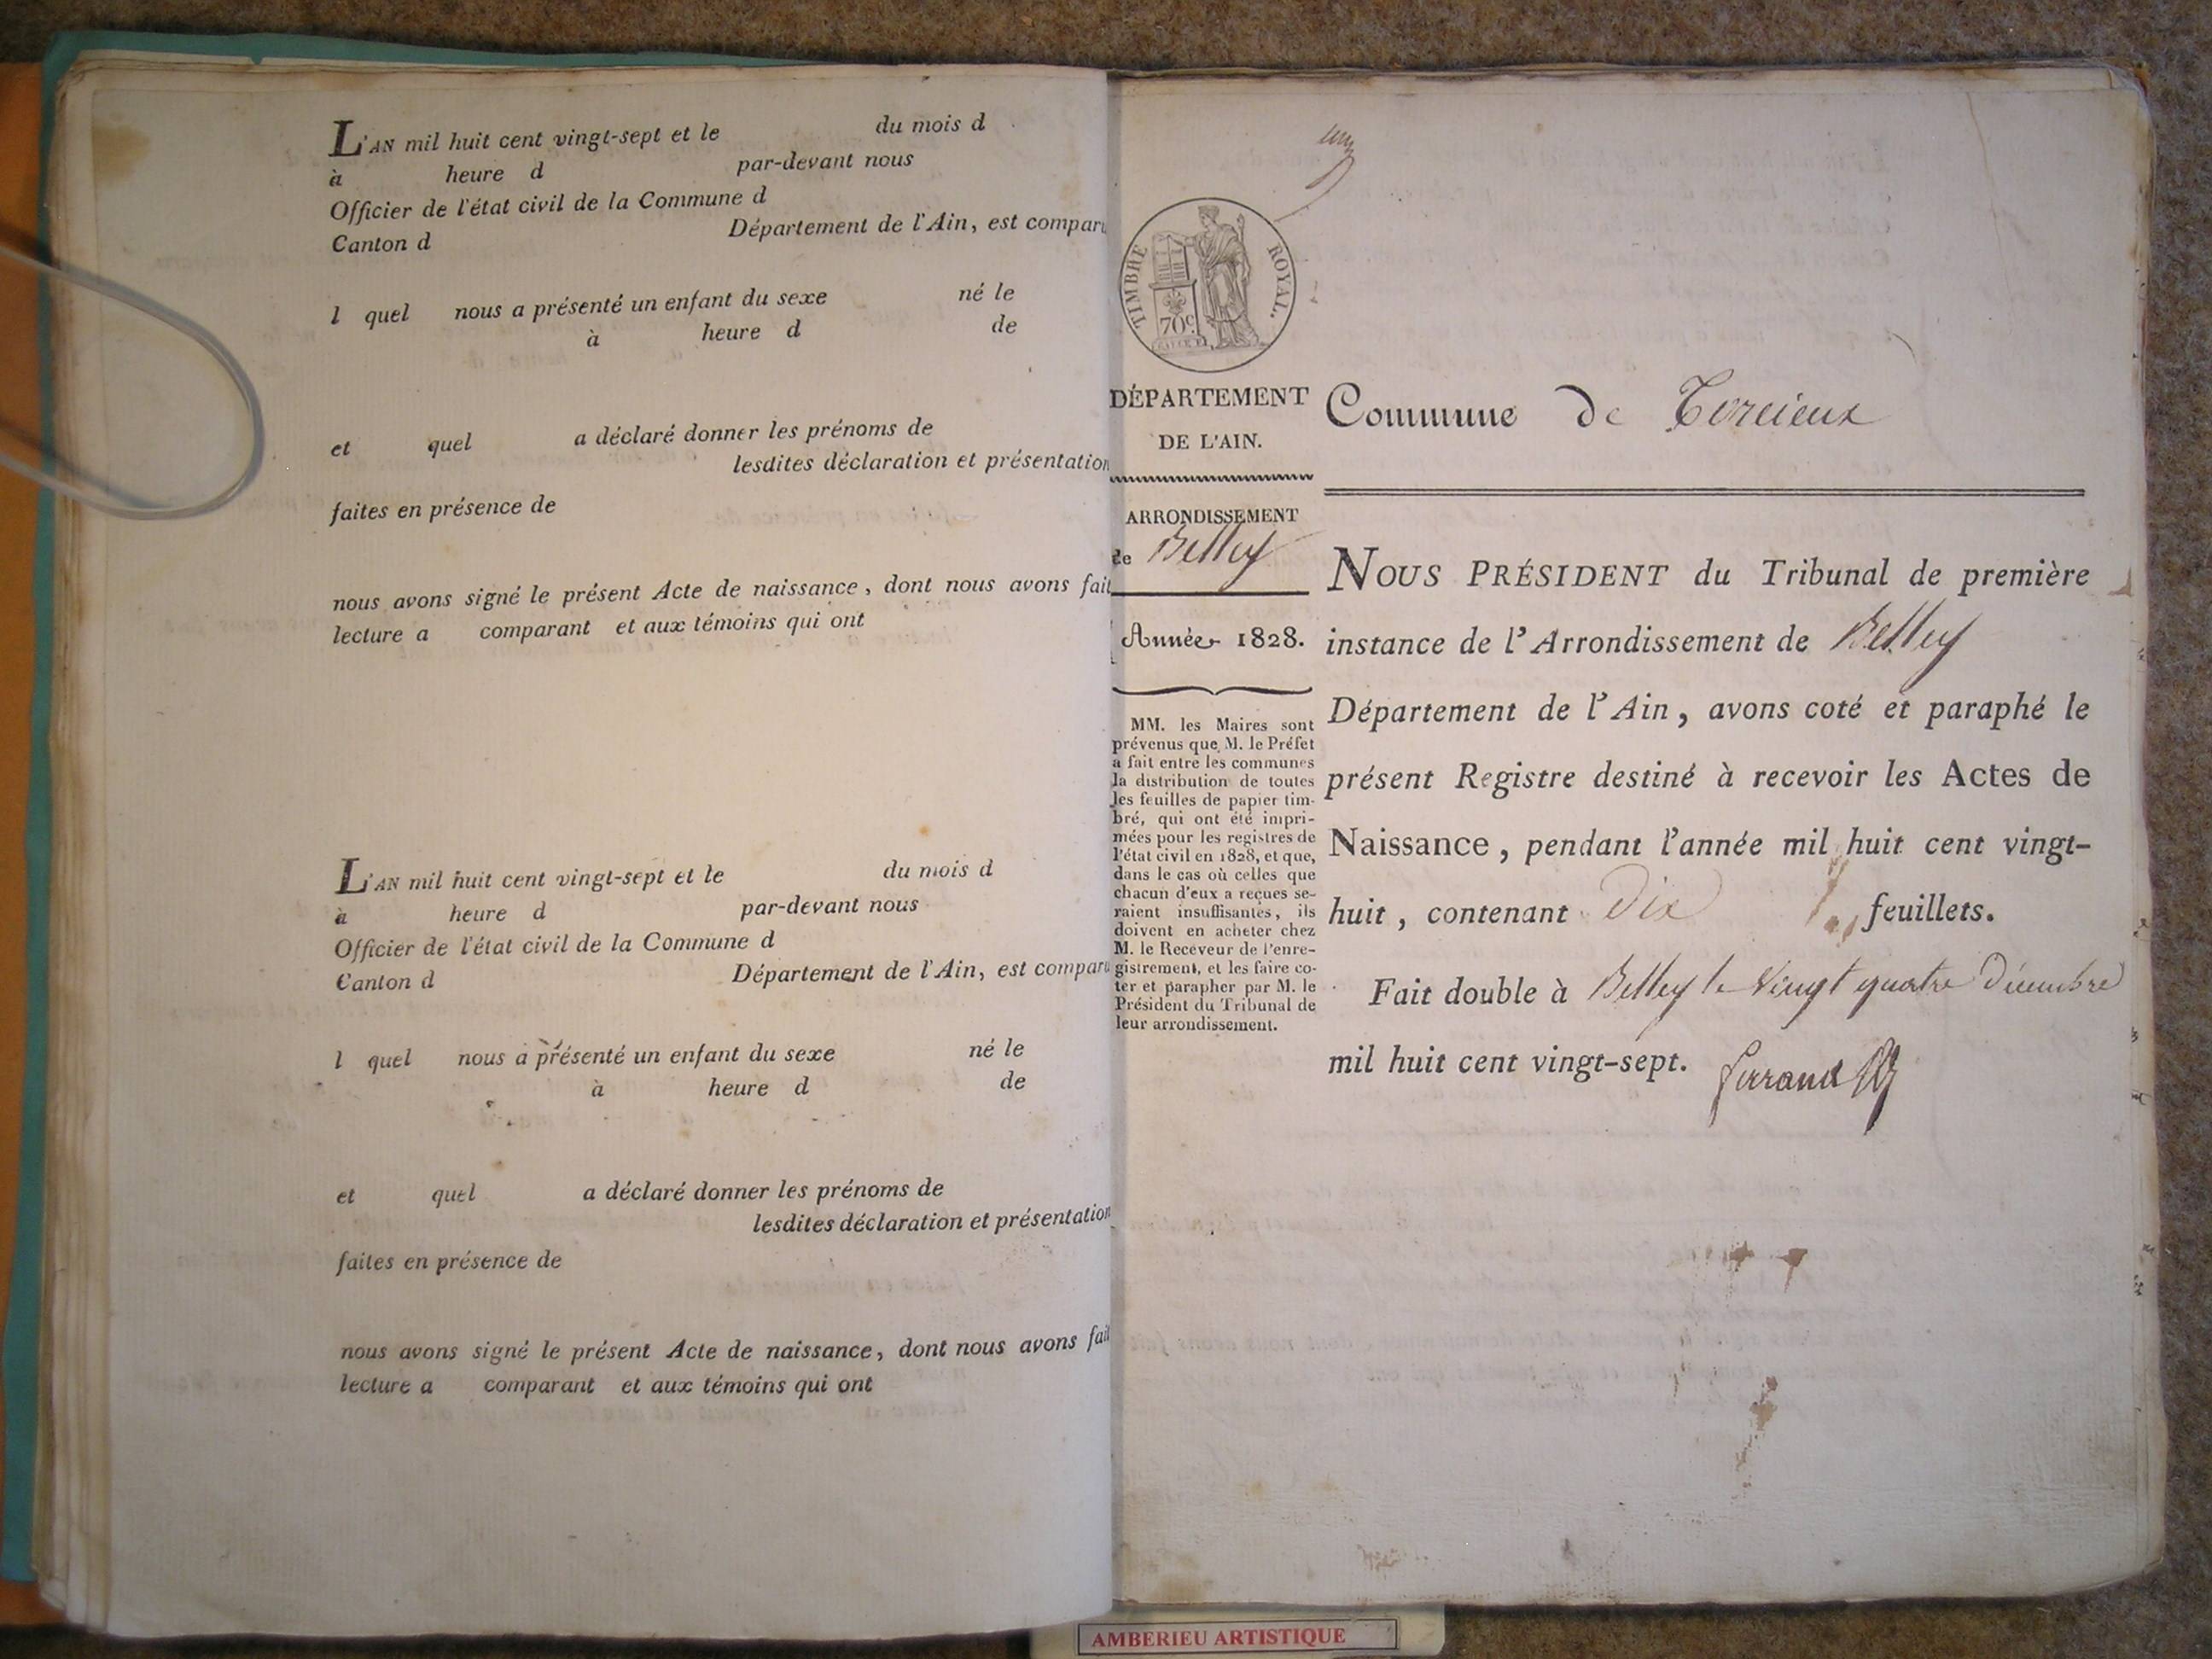 L'AN mil huit cent vingt-sept et le du mois d
à heure d par-devant nous
Officier de l'état civil de la Commune d
Canton d Département de l'Ain, est comparu
l quel nous a présenté un enfant du sexe né le
à heure d de
et quel a déclaré donner les prénoms de
lesdites déclaration et présentation
faites en présence de
nous avons signé le présent Acte de naissance, dont nous avons fait
lecture a comparant et aux témoins qui ont
L'AN mil huit cent vingt-sept et le du mois d
à heure d par-devant nous
Officier de l'état civil de la Commune d
Canton d Département de l'Ain, est comparu
l quel nous a présenté un enfant du sexe né le
à heure d de
et quel a déclaré donner les prénoms de
lesdites déclaration et présentation
faites en présence de
nous avons signé le présent Acte de naissance, dont nous avons fait
lecture a comparant et aux témoins qui ont
TIMBRE ROYAL.
70c.
DÉPARTEMENT
DE L'AIN.
ARRONDISSEMENT
de Belley
Année 1828.
MM. les Maires sont
prévenus que M. le Préfet
a fait entre les communes
la distribution de toutes
les feuilles de papier tim-
bré, qui ont été impri-
mées pour les registres de
l'état civil en 1828, et que,
dans le cas où celles que
chacun d'eux a reçues se-
raient insuffisantes, ils
doivent en acheter chez
M. le Receveur de l'enre-
gistrement, et les faire co-
ter et parapher par M. le
Président du Tribunal de
leur arrondissement.
Commune de Torcieux
NOUS PRÉSIDENT du Tribunal de première
instance de l'Arrondissement de Belley
Département de l'Ain, avons coté et paraphé le
présent Registre destiné à recevoir les Actes de
Naissance, pendant l'année mil huit cent vingt-
huit, contenant Dix feuillets.
Fait double à Belley le Vingt quatre Décembre
mil huit cent vingt-sept.
AMBERIEU ARTISTIQUE